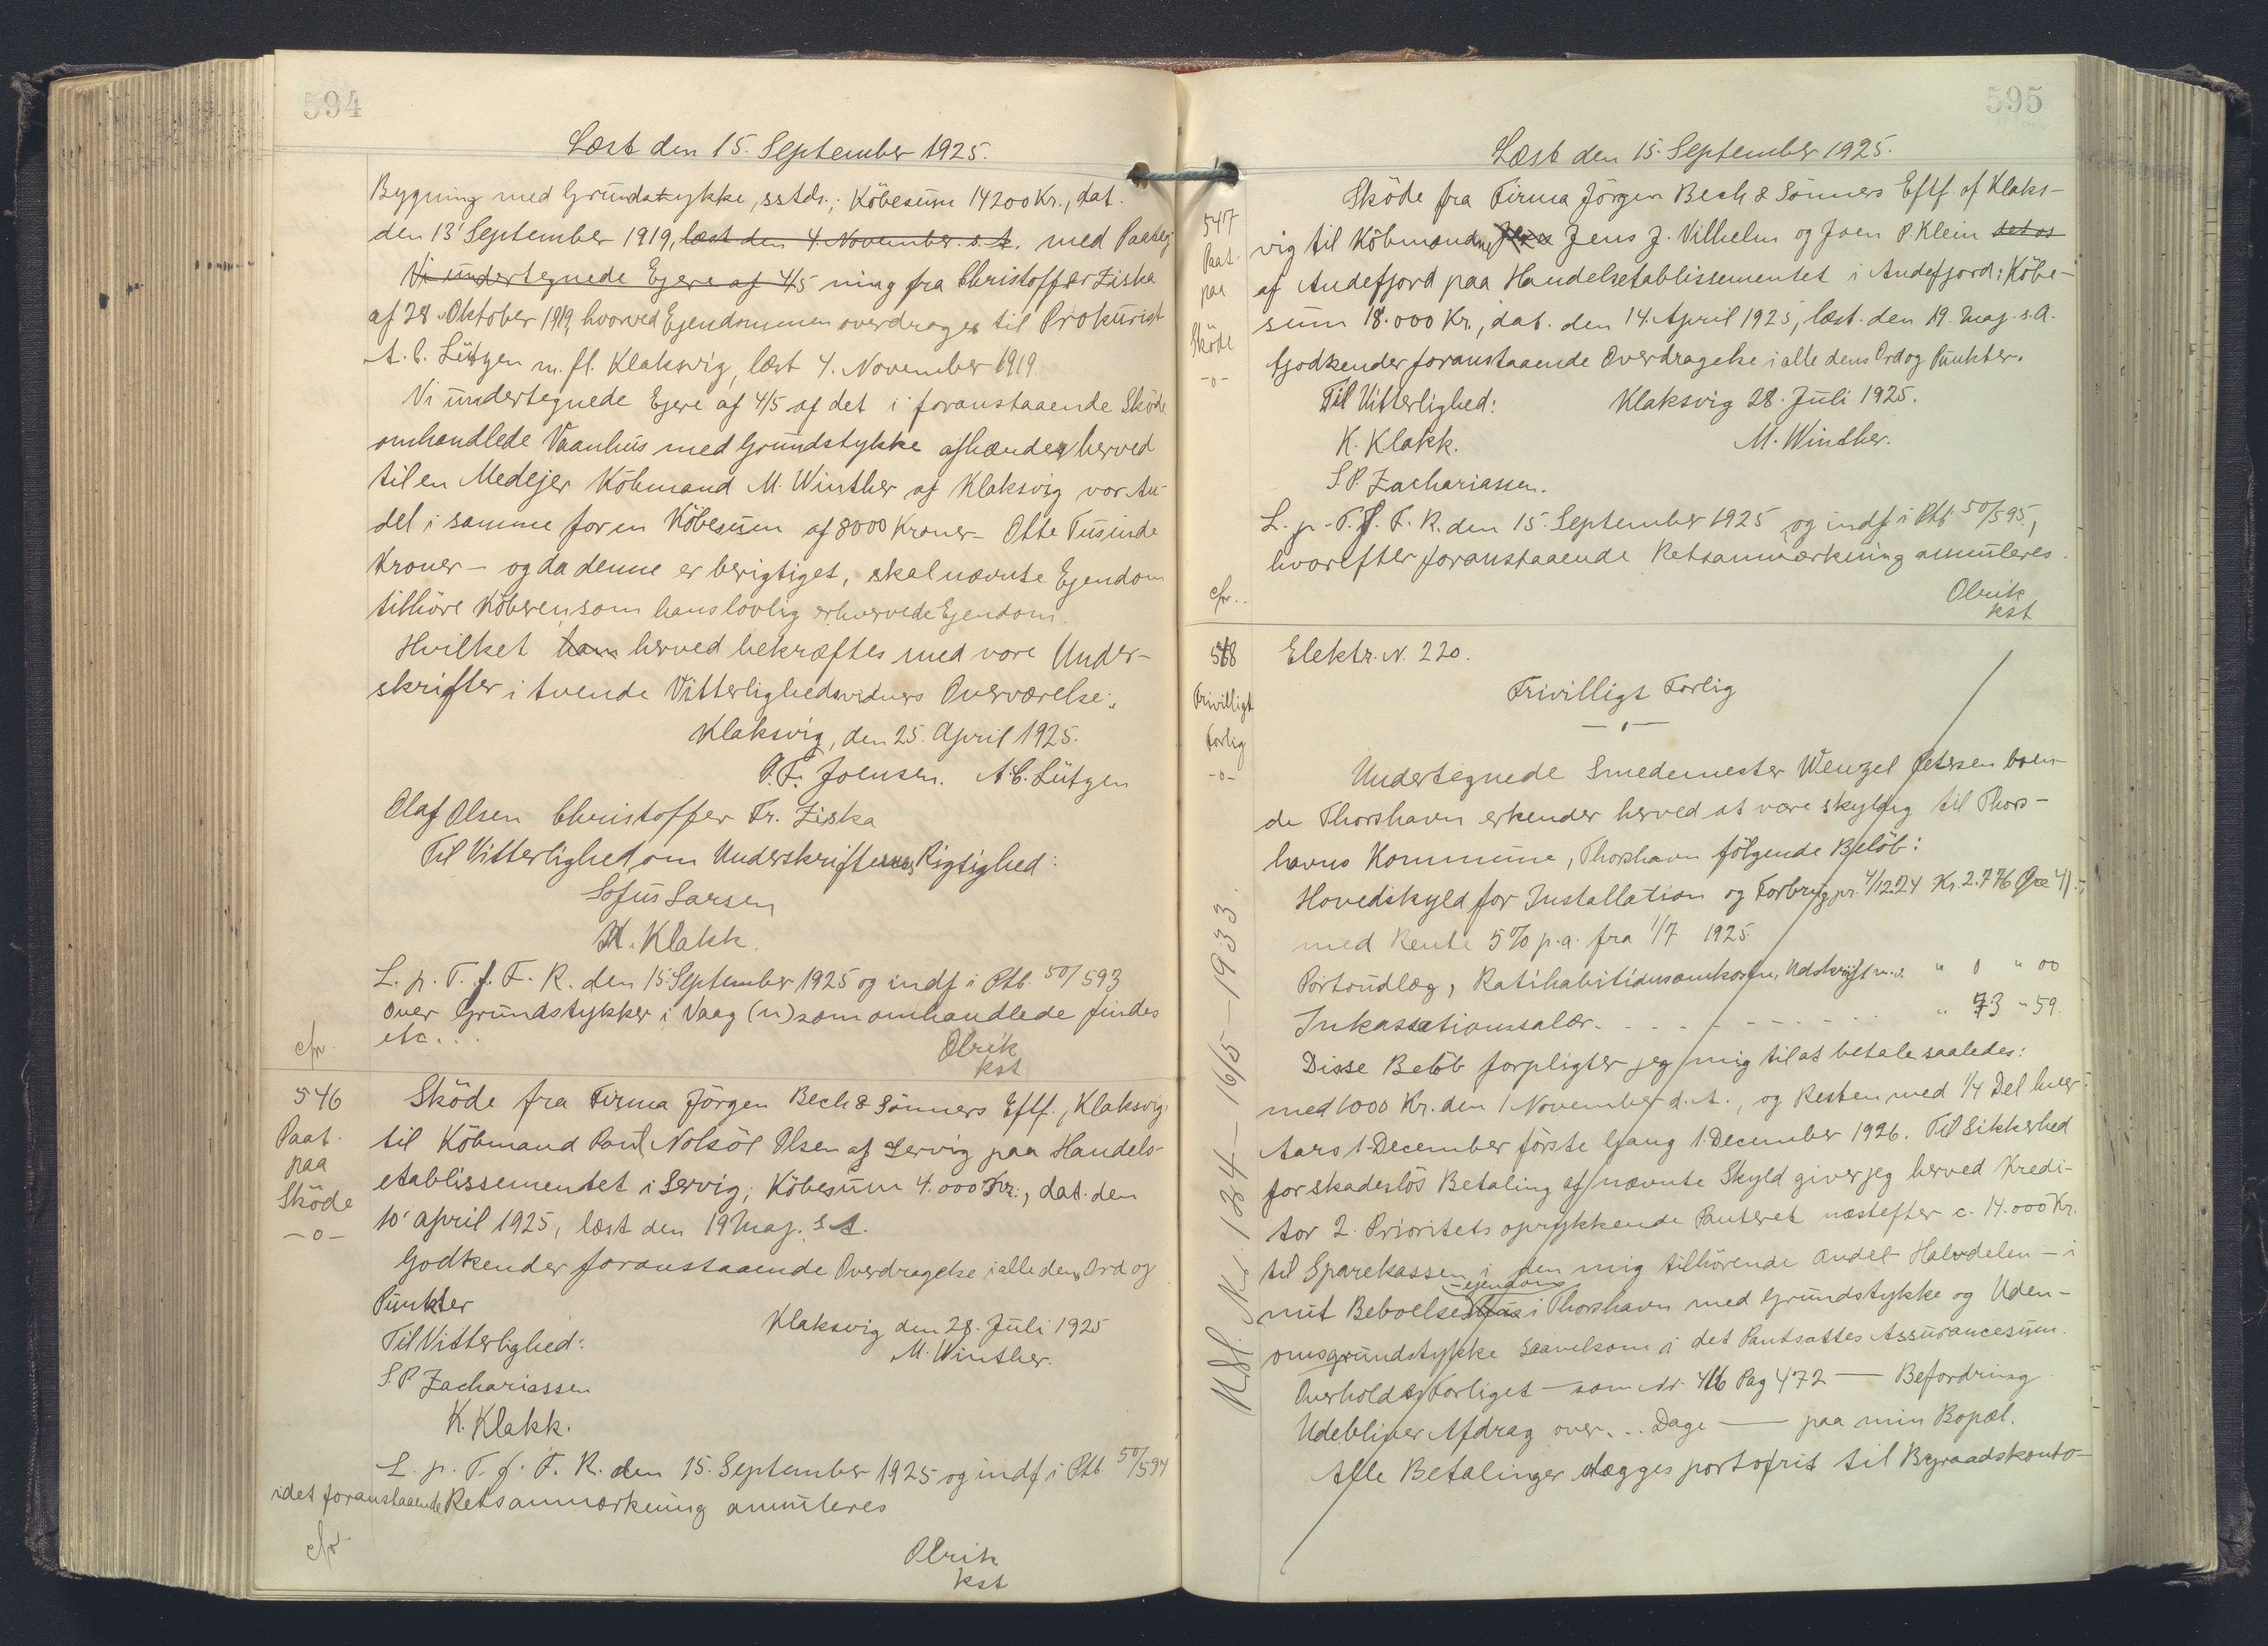 594
Læst den 15. September 1925.
Bygning med Grundstykke, sstds.; Köbesum 14200 Kr., dat.
den 13' September 1919, læst den 4. November s. A. med Paateg
Vi undertegnede Ejere af 4/5 ning fra Christoffer Ziska
af 28. Oktober 1919, hvorved Ejendommen overdrages til Prokurist
A. C. Lützen m. fl. Klaksvig, læst 4. November 1919.
Vi undertegnede Ejere af 4/5 af det i foranstaaende Sköde
omhandlede Vaanhus med Grundstykke afhænder herved
til en Medejer Köbmand M. Winther af Klaksvig vor An-
del i samme for en Köbesum af 8000 Kroner - Otte Tusinde
Kroner - og da denne er berigtiget, skal nævnte Ejendom
tilhöre Köberen som hans lovlig erhvervede Ejendom.
Hvilket herved bekræftes med vore Under-
skrifter i tvende Vitterlighedsvidners Overværelse.
Klaksvig, den 25. April 1925.
P. F. Joensen. A. C. Lützen
Olaf Olsen Christoffer Fr. Ziska
Til Vitterlighed om Underskrifternes Rigtighed:
Sofus Larsen
K. Klakk.
L. p. T. f. F. R. den 15. September 1925 og indf i Ptb. 50/593
over Grundstykker i Vaag (n) som omhandlede findes
etc...
cfr.
Olrik
kst
546
Paat.
paa
Sköde
-o-
Sköde fra Firma Jörgen Bech & Sönners Eftf., Klaksvig,
til Köbmand Poul Nolsöe Olsen af Lervig paa Handels-
etablissementet i Lervig; Köbesum 4.000 Kr., dat. den
10' April 1925, læst den 19 Maj s. A.
Godkender foranstaaende Overdragelse i alle dens Ord og
Punkter
Til Vitterlighed: Klaksvig den 28. Juli 1925
M. Winther.
S. P. Zachariassen
K. Klakk.
L. p. T. f. F. R. den 15. September 1925 og indf i Ptb. 50/594
idet foranstaaende Retsanmærkning annuleres
cfr.
Olrik
kst
595
Læst den 15. September 1925.
547
Paat.
paa
Sköde
-o-
Sköde fra Firma Jörgen Bech & Sönners Eftf. af Klaks-
vig til Köbmændene Jens J. Vilhelm og Joen P. Klein
af Andefjord paa Handelsetablissementet i Andefjord: Köbe-
sum 18.000 Kr., dat. den 14. April 1925, læst den 19. Maj s. A.
Godkender foranstaaende Overdragelse i alle dens Ord og Punkter.
Til Vitterlighed: Klaksvig 28. Juli 1925.
K. Klakk. M. Winther.
S. P. Zachariassen.
L. p. T. f. F. R. den 15. September 1925 og indf i Ptb. 50/595.,
hvorefter foranstaaende Retsanmærkning annuleres.
cfr..
Olrik
kst
548
Frivilligt
Forlig
-o-
Elektr. N. 220.
Frivilligt Forlig
Undertegnede Smedemester Wenzel Petersen boen-
de Thorshavn erkender herved at være skyldig til Thors-
havns Kommune, Thorshavn följende Belöb:
Hovedskyld for Installation og Forbrug pr. 4/12.24 Kr. 2.776 Öre 41
med Rente 5% p.a. fra 1/7 1925.
Portoudlæg, Ratihabitionsomkostn. Udskrift m.v. " 0 " 00
Inkassationssalær. " 73 " 59.
Disse Belöb forpligter jeg mig til at betale saaledes:
med 1000 Kr. den 1 November d. A., og Resten med 1/4 Del hver
Aars 1 December förste Gang 1 December 1926. Til Sikkerhed
for skadeslös Betaling af nævnte Skyld giver jeg herved Kredi-
tor 2. Prioritets oprykkende Panteret næstefter c. 14.000 Kr.
til Sparekassen i den mig tilhörende andel - Halvdelen - i
-ejendom
mit Beboelseshus i Thorshavn med Grundstykke og Uden-
omsgrundstykke saavelsom i det Pantsattes Assurancesum.
Overholdes Forliget - som Nr. 416 Pag 472 - Befordring.
Udebliver Afdrag over... Dage - paa min Bopæl.
Alle Betalinger lægges portofrit til Byraadskonto-
Udsl. Nr. 134 - 16/5 - 1933.